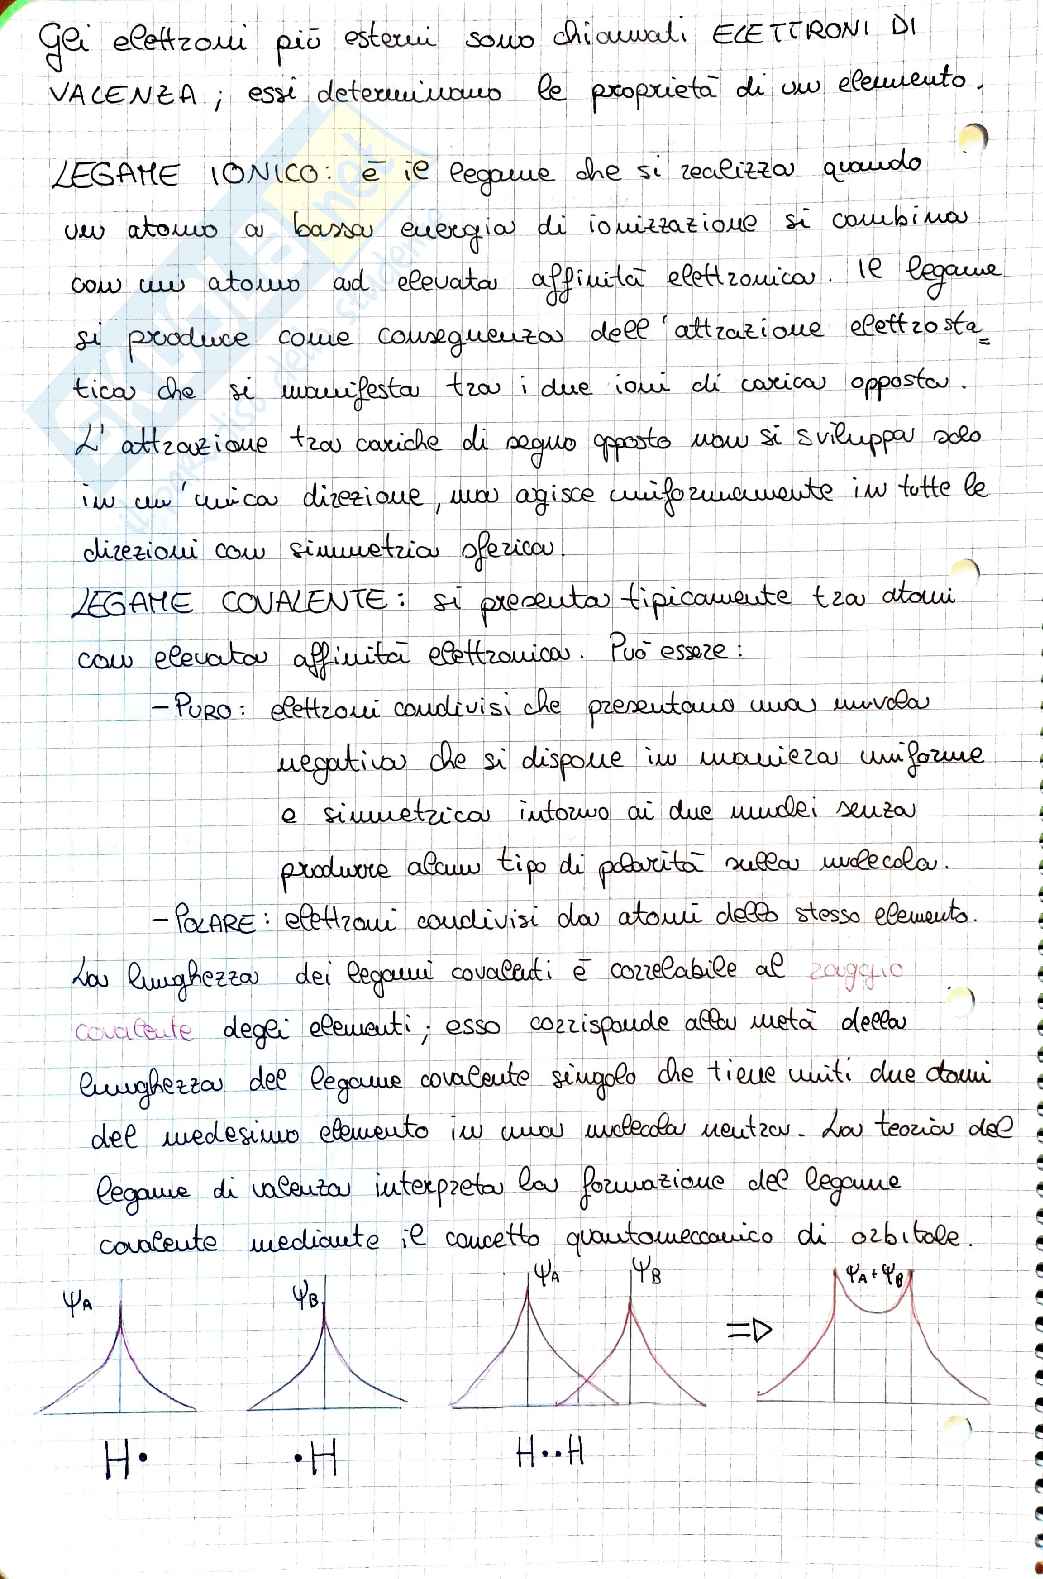 Gli elettroni più esterni sono chiamati ELETTRONI DI
VALENZA; essi determinano le proprietà di un elemento.
LEGAME IONICO: è il legame che si realizza quando
un atomo a bassa energia di ionizzazione si combina
con un atomo ad elevata affinità elettronica. Il legame
si produce come conseguenza dell'attrazione elettrosta=
tica che si manifesta tra i due ioni di carica opposta.
L'attrazione tra cariche di segno opposto non si sviluppa solo
in un'unica direzione, ma agisce uniformemente in tutte le
direzioni con simmetria sferica.
LEGAME COVALENTE: si presenta tipicamente tra atomi
con elevata affinità elettronica. Può essere:
- PURO: elettroni condivisi che presentano una nuvola
negativa che si dispone in maniera uniforme
e simmetrica intorno ai due nuclei senza
produrre alcun tipo di polarità sulla molecola.
- POLARE: elettroni condivisi da atomi dello stesso elemento.
La lunghezza dei legami covalenti è correlabile al raggio
covalente degli elementi; esso corrisponde alla metà della
lunghezza del legame covalente singolo che tiene uniti due atomi
del medesimo elemento in una molecola neutra. La teoria del
legame di valenza interpreta la formazione del legame
covalente mediante il concetto quantomeccanico di orbitale.
ΨA ΨB ΨA ΨB ⇒ ΨA+ΨB
H• •H H••H